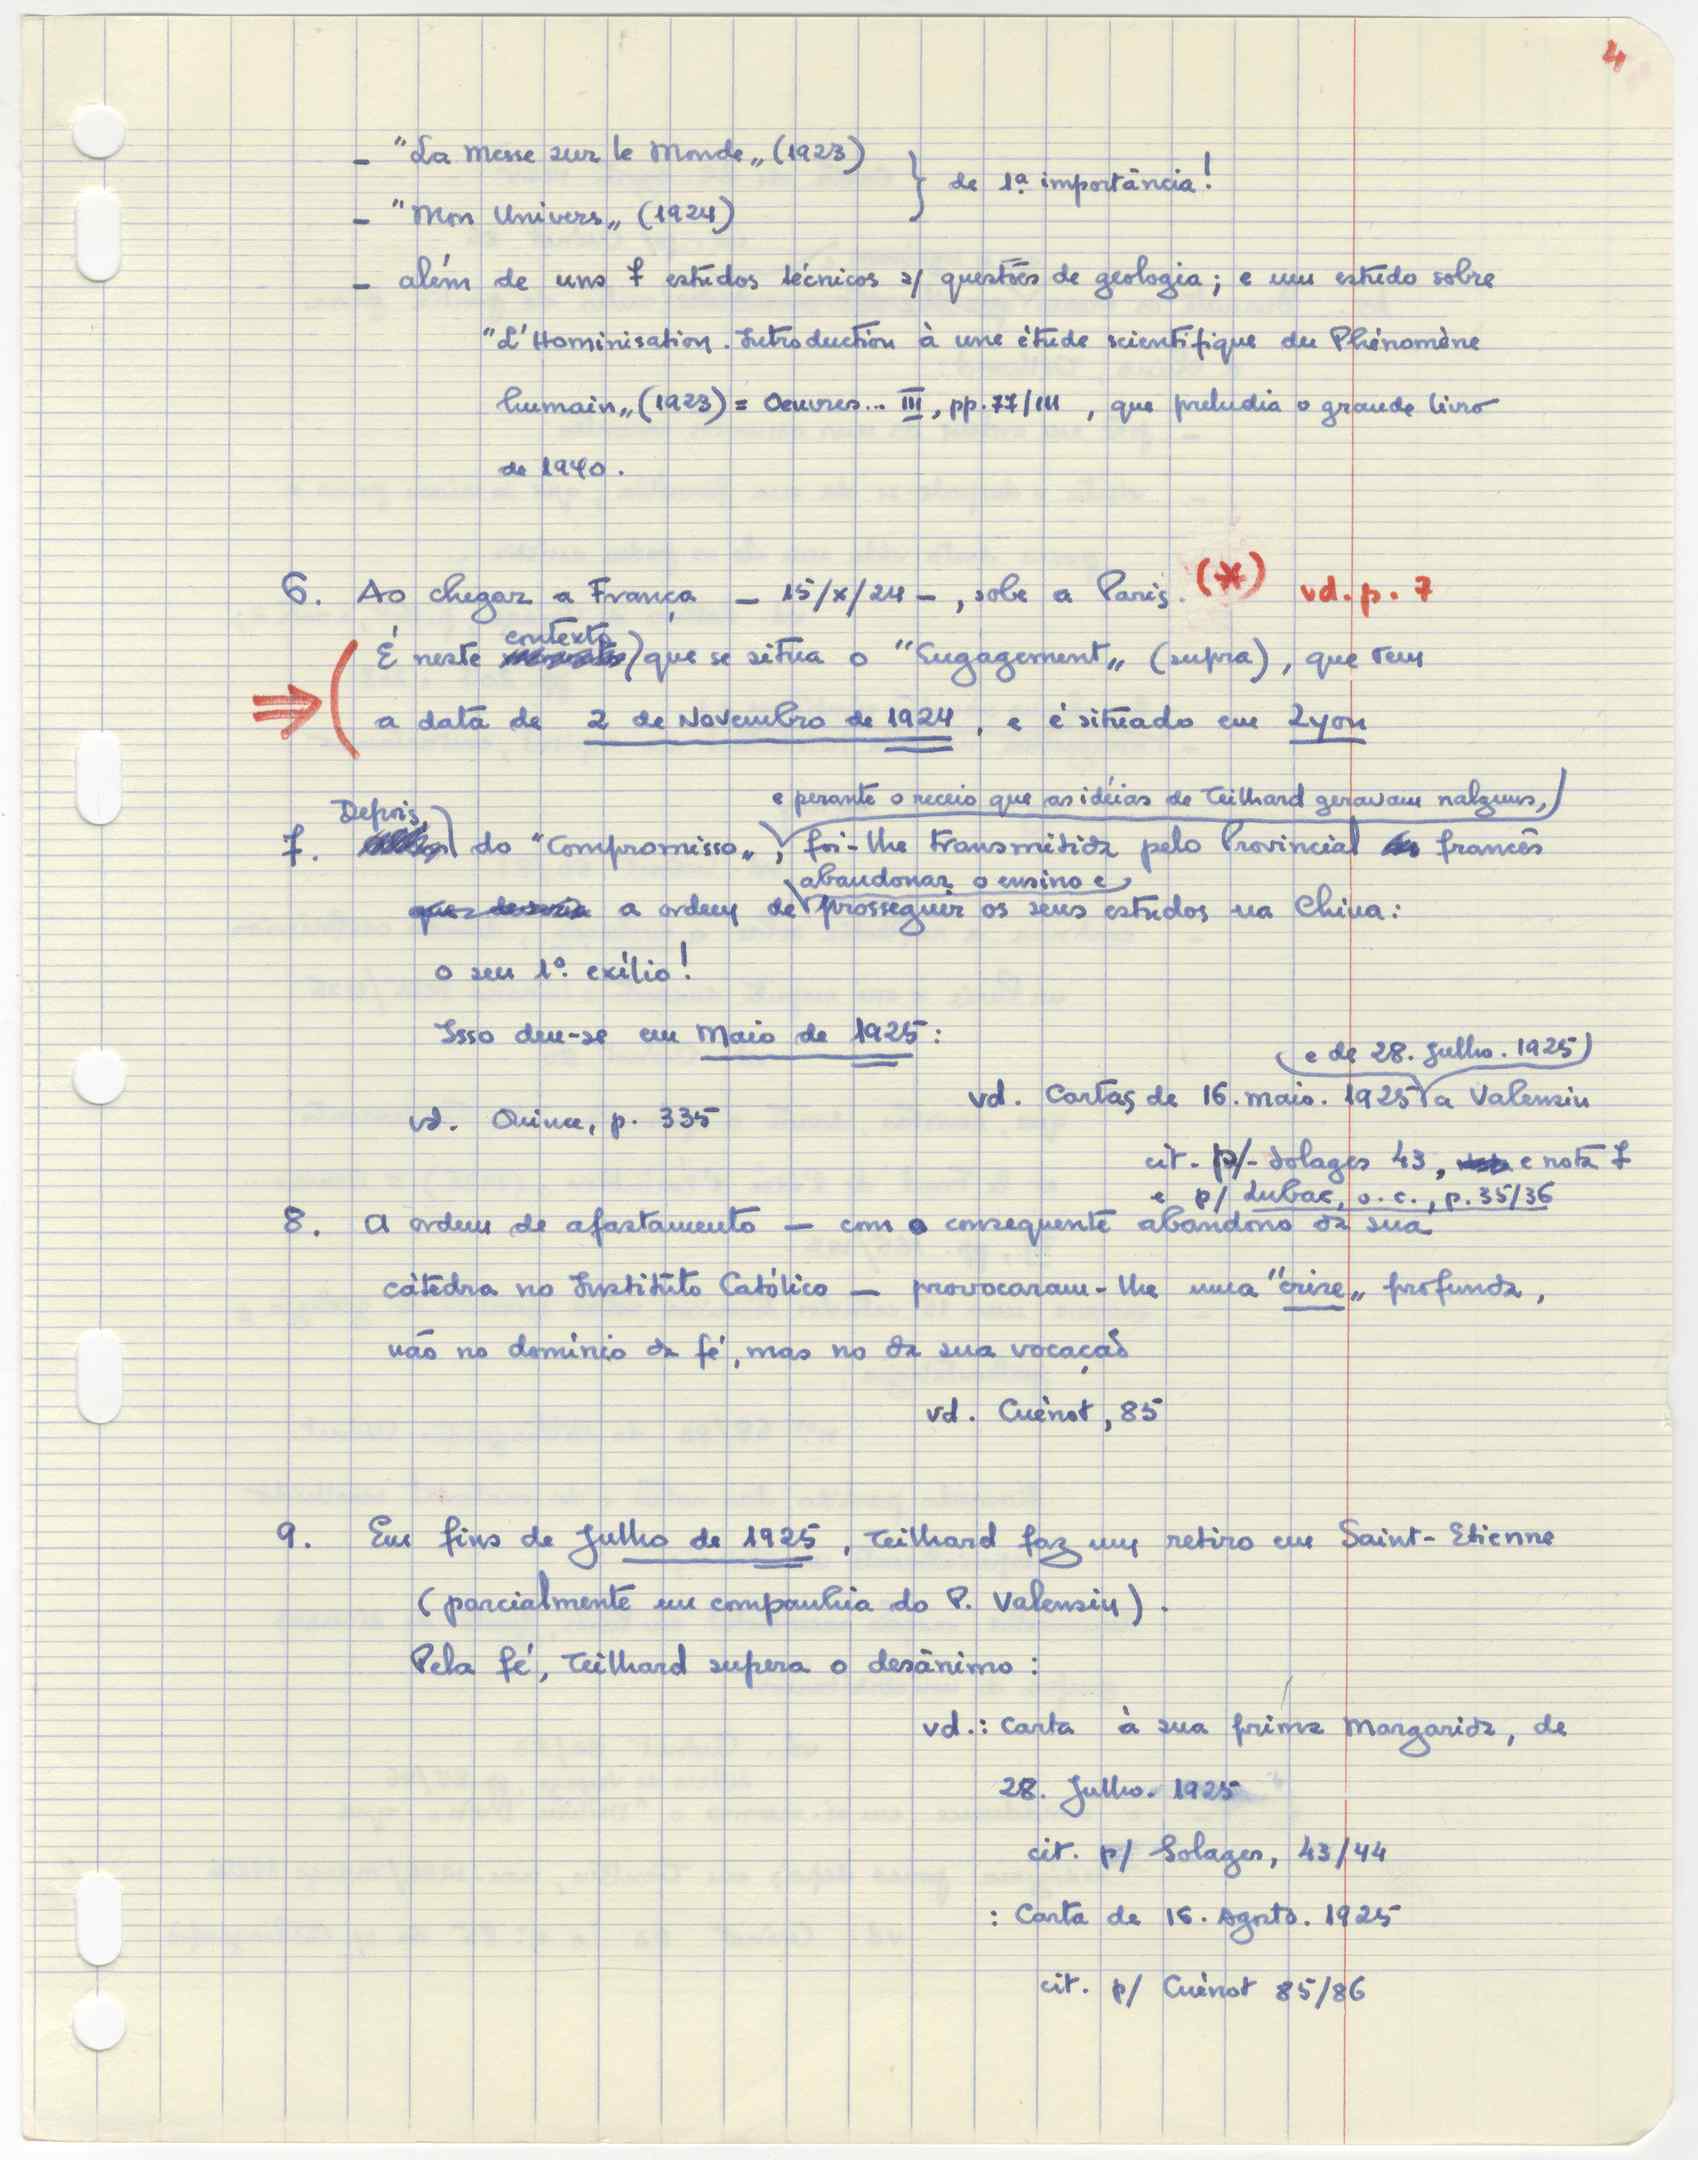 4
- "La Messe sur le Monde„ (1923)
de 1ª importância!
- "Mon Univers„ (1924)
- além de uns 7 estudos técnicos s/ questões de geologia; e um estudo sobre
"L'Hominisation. Introduction à une étude scientifique du Phénomène
humain„ (1923) = Oeuvres... III, pp. 77/111, que preludia o grande livro
de 1940.
6. Ao chegar a França – 15/X/24 –, sobe a Paris. (*) vd. p. 7
contexto
É neste que se situa o "Engagement„ (supra), que tem
⇒ a data de 2 de Novembro de 1924, e é situado em Lyon
e perante o receio que as idéias de Teilhard geravam nalguns,
Depois,
7. do "Compromisso„, foi-lhe transmitida pelo Provincial francês
abandonar o ensino e
a ordem de prosseguir os seus estudos na China:
o seu 1º. exílio!
Isso deu-se em Maio de 1925:
e de 28. Julho. 1925
vd. Cartas de 16. maio. 1925 a Valensin
vd. Ouince, p. 335
cit. p/ Solages 43, e nota 7
e p/ Lubac, o. c., p. 35/36
8. A ordem de afastamento – com o consequente abandono da sua
cátedra no Instituto Católico – provocaram-lhe uma "crise„ profunda,
não no domínio da fé, mas no da sua vocação
vd. Cuénot, 85
9. Em fins de Julho de 1925, Teilhard faz um retiro em Saint-Etienne
(parcialmente em companhia do P. Valensin).
Pela fé, Teilhard supera o desânimo:
vd.: Carta à sua prima Margarida, de
28. Julho. 1925
cit. p/ Solages, 43/44
: Carta de 16. Agosto. 1925
cit. p/ Cuénot 85/86